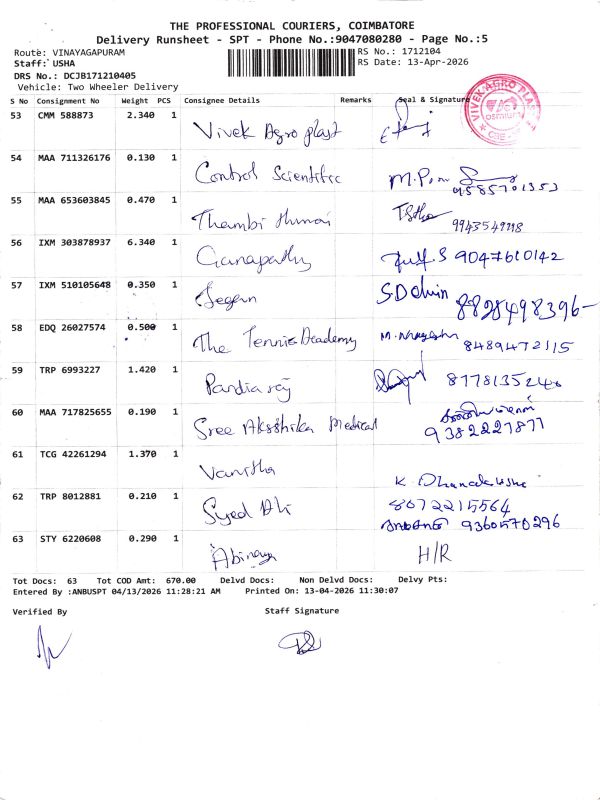 THE PROFESSIONAL COURIERS, COIMBATORE
Delivery Runsheet - SPT - Phone No.:9047080280 - Page No.:5
Route: VINAYAGAPURAM RS No.: 1712104
Staff: USHA RS Date: 13-Apr-2026
DRS No.: DCJB171210405
Vehicle: Two Wheeler Delivery
S No Consignment No Weight PCS Consignee Details Remarks Seal & Signature
53 CMM 588873 2.340 1 Vivek Agro plast
VIVEK AGRO PLAST
osmium
CBE
54 MAA 711326176 0.130 1 Control Scientific
9585701353
55 MAA 653603845 0.470 1 Thambi
9943549998
56 IXM 303878937 6.340 1 Ganapathy S 9047610142
57 IXM 510105648 0.350 1 Jegan 8828498396
58 EDQ 26027574 0.500 1 The Tennis Academy 8489472115
59 TRP 6993227 1.420 1 Pandia raj 8778135240
60 MAA 717825655 0.190 1 Sree Akshika Medical
9382227877
61 TCG 42261294 1.370 1 Vanitha
K
62 TRP 8012881 0.210 1 Syed Ali 8072215564
9360570296
63 STY 6220608 0.290 1 Abinaya H/R
Tot Docs: 63 Tot COD Amt: 670.00 Delvd Docs: Non Delvd Docs: Delvy Pts:
Entered By :ANBUSPT 04/13/2026 11:28:21 AM Printed On: 13-04-2026 11:30:07
Verified By Staff Signature